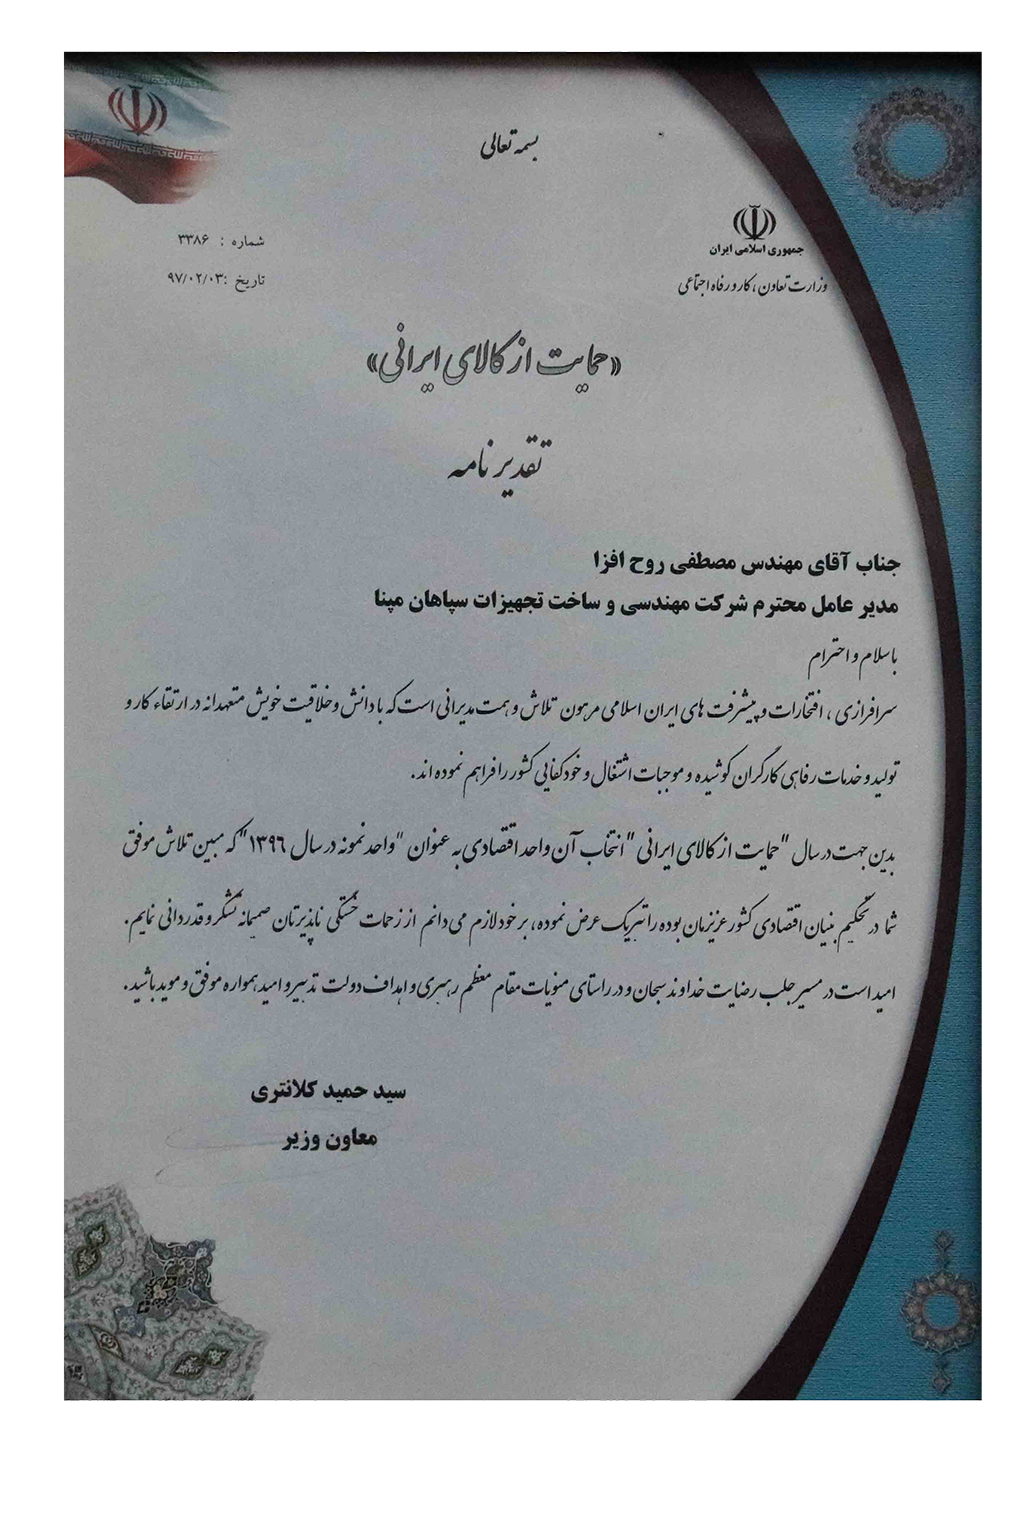 بسمه تعالی
جمهوری اسلامی ایران
وزارت تعاون، کار و رفاه اجتماعی
شماره : ۳۳۸۶
تاریخ : ۹۷/۰۲/۰۳
«حمایت از کالای ایرانی»
تقدیر نامه
جناب آقای مهندس مصطفی روح افزا
مدیر عامل محترم شرکت مهندسی و ساخت تجهیزات سپاهان مپنا
با سلام و احترام
سرافرازی ، افتخارات و پیشرفت های ایران اسلامی مرهون تلاش و همت مدیرانی است که با دانش و خلاقیت خویش متعهدانه در ارتقاء کار و
تولید و خدمات رفاهی کارگران کوشیده و موجبات اشتغال و خودکفایی کشور را فراهم نموده اند.
بدین جهت در سال "حمایت از کالای ایرانی" انتخاب آن واحد اقتصادی به عنوان "واحد نمونه در سال ۱۳۹۶" که مبین تلاش موفق
شما در تحکیم بنیان اقتصادی کشور عزیزمان بوده را تبریک عرض نموده، بر خود لازم می دانم از زحمات خستگی ناپذیرتان صمیمانه تشکر و قدردانی نمایم.
امید است در مسیر جلب رضایت خداوند سبحان و در راستای منویات مقام معظم رهبری و اهداف دولت تدبیر و امید همواره موفق و موید باشید.
سید حمید کلانتری
معاون وزیر